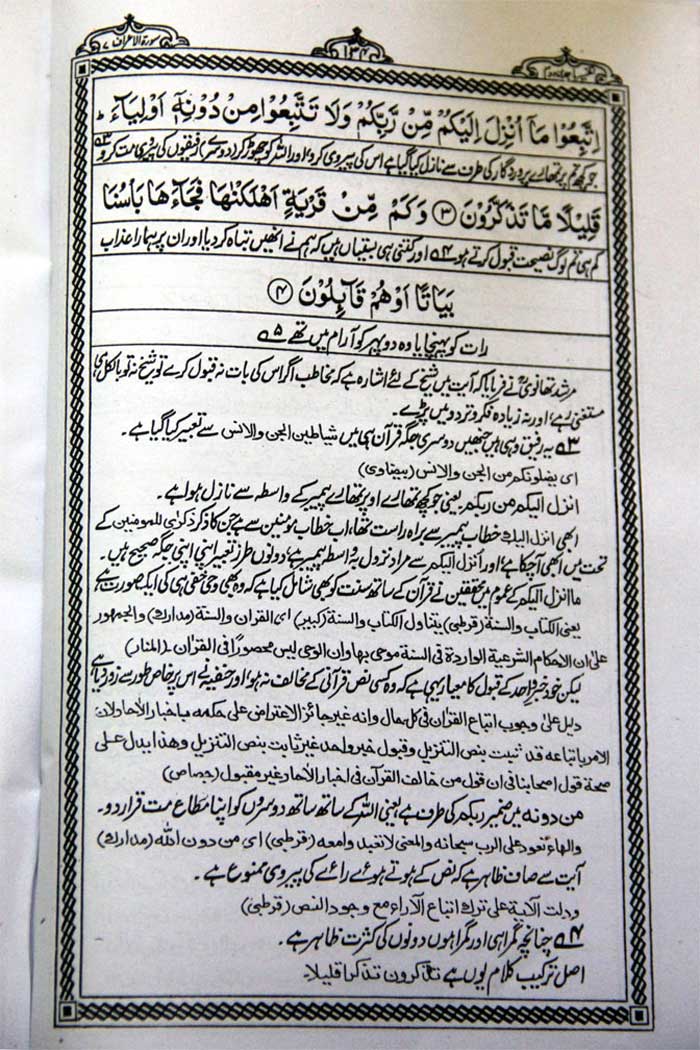 سورة الاعراف ٧
١٣٤
اِتَّبِعُوْا مَآ اُنْزِلَ اِلَيْكُمْ مِّنْ رَّبِّكُمْ وَلَا تَتَّبِعُوْا مِنْ دُوْنِهٖٓ اَوْلِيَآءَ ؕ
جو کچھ تم پر تمھارے پروردگار کی طرف سے نازل کیا گیا ہے اس کی پیروی کرو اور اللہ کو چھوڑ کر دوسرے رفیقوں کی پیروی مت کرو ۵۳
قَلِيْلًا مَّا تَذَكَّرُوْنَ ۝۳ وَكَمْ مِّنْ قَرْيَةٍ اَهْلَكْنٰهَا فَجَآءَهَا بَاْسُنَا
کم ہی تم لوگ نصیحت قبول کرتے ہو ۵۴ اور کتنی ہی بستیاں ہیں کہ ہم نے انھیں تباہ کر دیا اور ان پر ہمارا عذاب
بَيَاتًا اَوْ هُمْ قَآئِلُوْنَ ۝۴
رات کو پہنچا یا وہ دوپہر کو آرام میں تھے ۵۵
مرشد تھانویؒ نے فرمایا کہ آیت میں شیخ کے لئے اشارہ ہے کہ مخاطب اگر اس کی بات نہ قبول کرے تو شیخ نہ تو بالکل ہی
مستغنی رہے، اور نہ زیادہ فکر و تردد میں پڑے۔
۵۳ یہ رفیق وہی ہیں جنھیں دوسری جگہ قرآن ہی میں شیاطین الجن والانس سے تعبیر کیا گیا ہے۔
ای یضلونکم من الجن والانس (بیضاوی)
انزل الیکم من ربکم۔ یعنی جو کچھ تمھارے اوپر تمھارے پیمبر کے واسطہ سے نازل ہوا ہے۔
ابھی انزل الیك خطاب پیمبر سے براہ راست تھا، اب خطاب مؤمنین سے ہے جن کا ذکر ذکری للمومنین کے
تحت میں ابھی آچکا ہے، اور انزل الیکم سے مراد نزول بواسطہ پیمبر ہے، دونوں طرز تعبیر اپنی اپنی جگہ صحیح ہیں۔
ما انزل الیکم کے عموم میں محققین نے قرآن کے ساتھ سنت کو بھی شامل کیا ہے کہ وہ بھی وحی خفی ہی کی ایک صورت ہے
یعنی الکتاب والسنة (قرطبی) یتناول الکتاب والسنة (کبیر) ای القراٰن والسنة (مدارك) والجمهور
علیٰ ان الاحکام الشرعیة الواردة فی السنة موحی بها وان الوحی لیس محصورًا فی القراٰن۔ (المنار)
لیکن خود خبر واحد کے قبول کا معیار یہی ہے کہ وہ کسی نص قرآنی کے مخالف نہ ہو، اور حنفیہ نے اس پر خاص طور سے زور دیا ہے
دلیل علیٰ وجوب اتباع القراٰن فی کل حال وانه غیر جائز الاعتراض علی حکمه باخبار الاٰحاد لان
الامر باتباعه قد ثبت بنص التنزیل وقبول خبر واحد غیر ثابت بنص التنزیل وهذا یدل علی
صحة قول اصحابنا فی ان قول من خالف القراٰن فی اخبار الاٰحاد غیر مقبول (جصاص)
من دونه میں ضمیر ربکم کی طرف ہے یعنی اللہ کے ساتھ ساتھ دوسروں کو اپنا مطاع مت قرار دو۔
والهاء تعود علی الرب سبحانه والمعنی لا تعبدوا معه (قرطبی) ای من دون الله (مدارك)
آیت سے صاف ظاہر ہے کہ نص کے ہوتے ہوئے رائے کی پیروی ممنوع ہے۔
ودلت الاٰیة علیٰ ترك اتباع الاٰراء مع وجود النص (قرطبی)
۵۴ چنانچہ گمراہی اور گمراہوں دونوں کی کثرت ظاہر ہے۔
اصل ترکیب کلام یوں ہے تذکرون تذکرا قلیلا